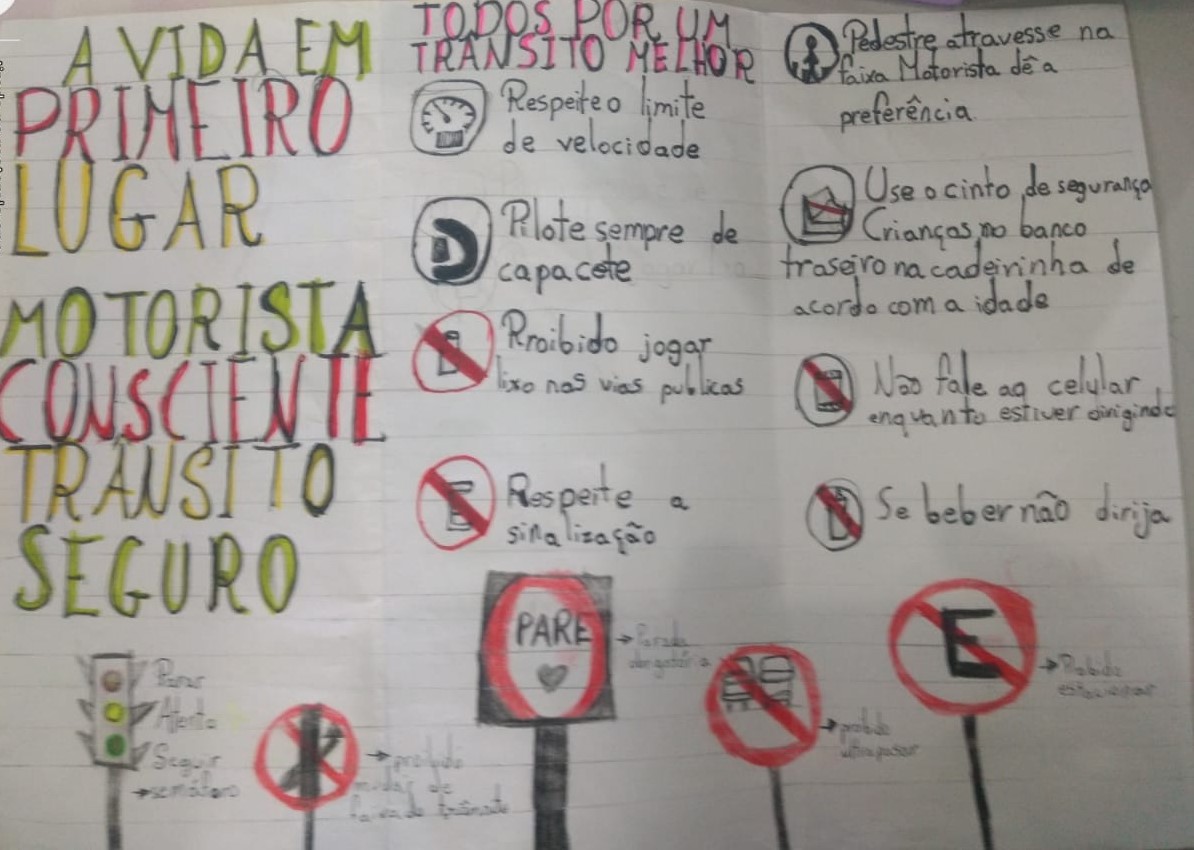 A VIDA EM
PRIMEIRO
LUGAR
MOTORISTA
CONSCIENTE
TRÂNSITO
SEGURO
TODOS POR UM
TRÂNSITO MELHOR
Respeite o limite
de velocidade
Pilote sempre de
capacete
Proibido jogar
lixo nas vias publicas
Respeite a
sinalização
Pedestre atravesse na
faixa Motorista dê a
preferência
Use o cinto de segurança
Crianças no banco
traseiro na cadeirinha de
acordo com a idade
Não fale ao celular
enquanto estiver dirigindo
Se beber não dirija
Parar
Atento
Seguir
→semáforo
→ proibido
mudar de
faixa de trânsito
PARE
→ Parada
obrigatória
→ proibido
ultrapassar
E
→ Proibido
estacionar